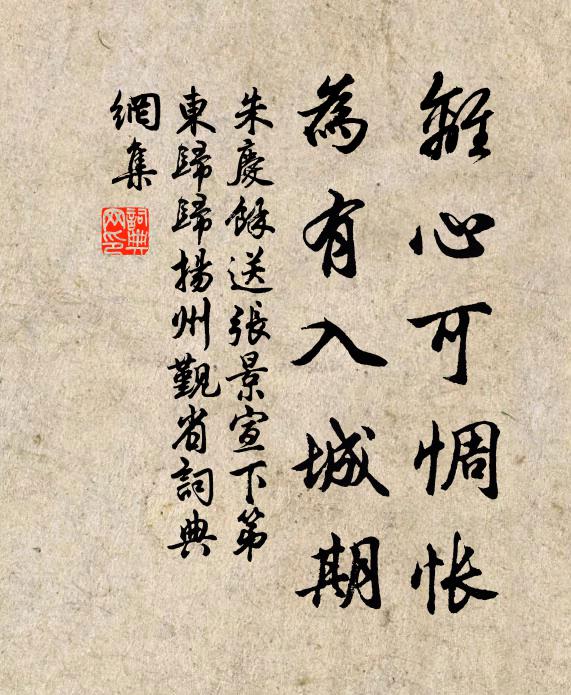 離心可惆怅
為有入城期
朱慶餘送張景宣下第
東歸歸揚州覲省詞典
網集
詞典
网印